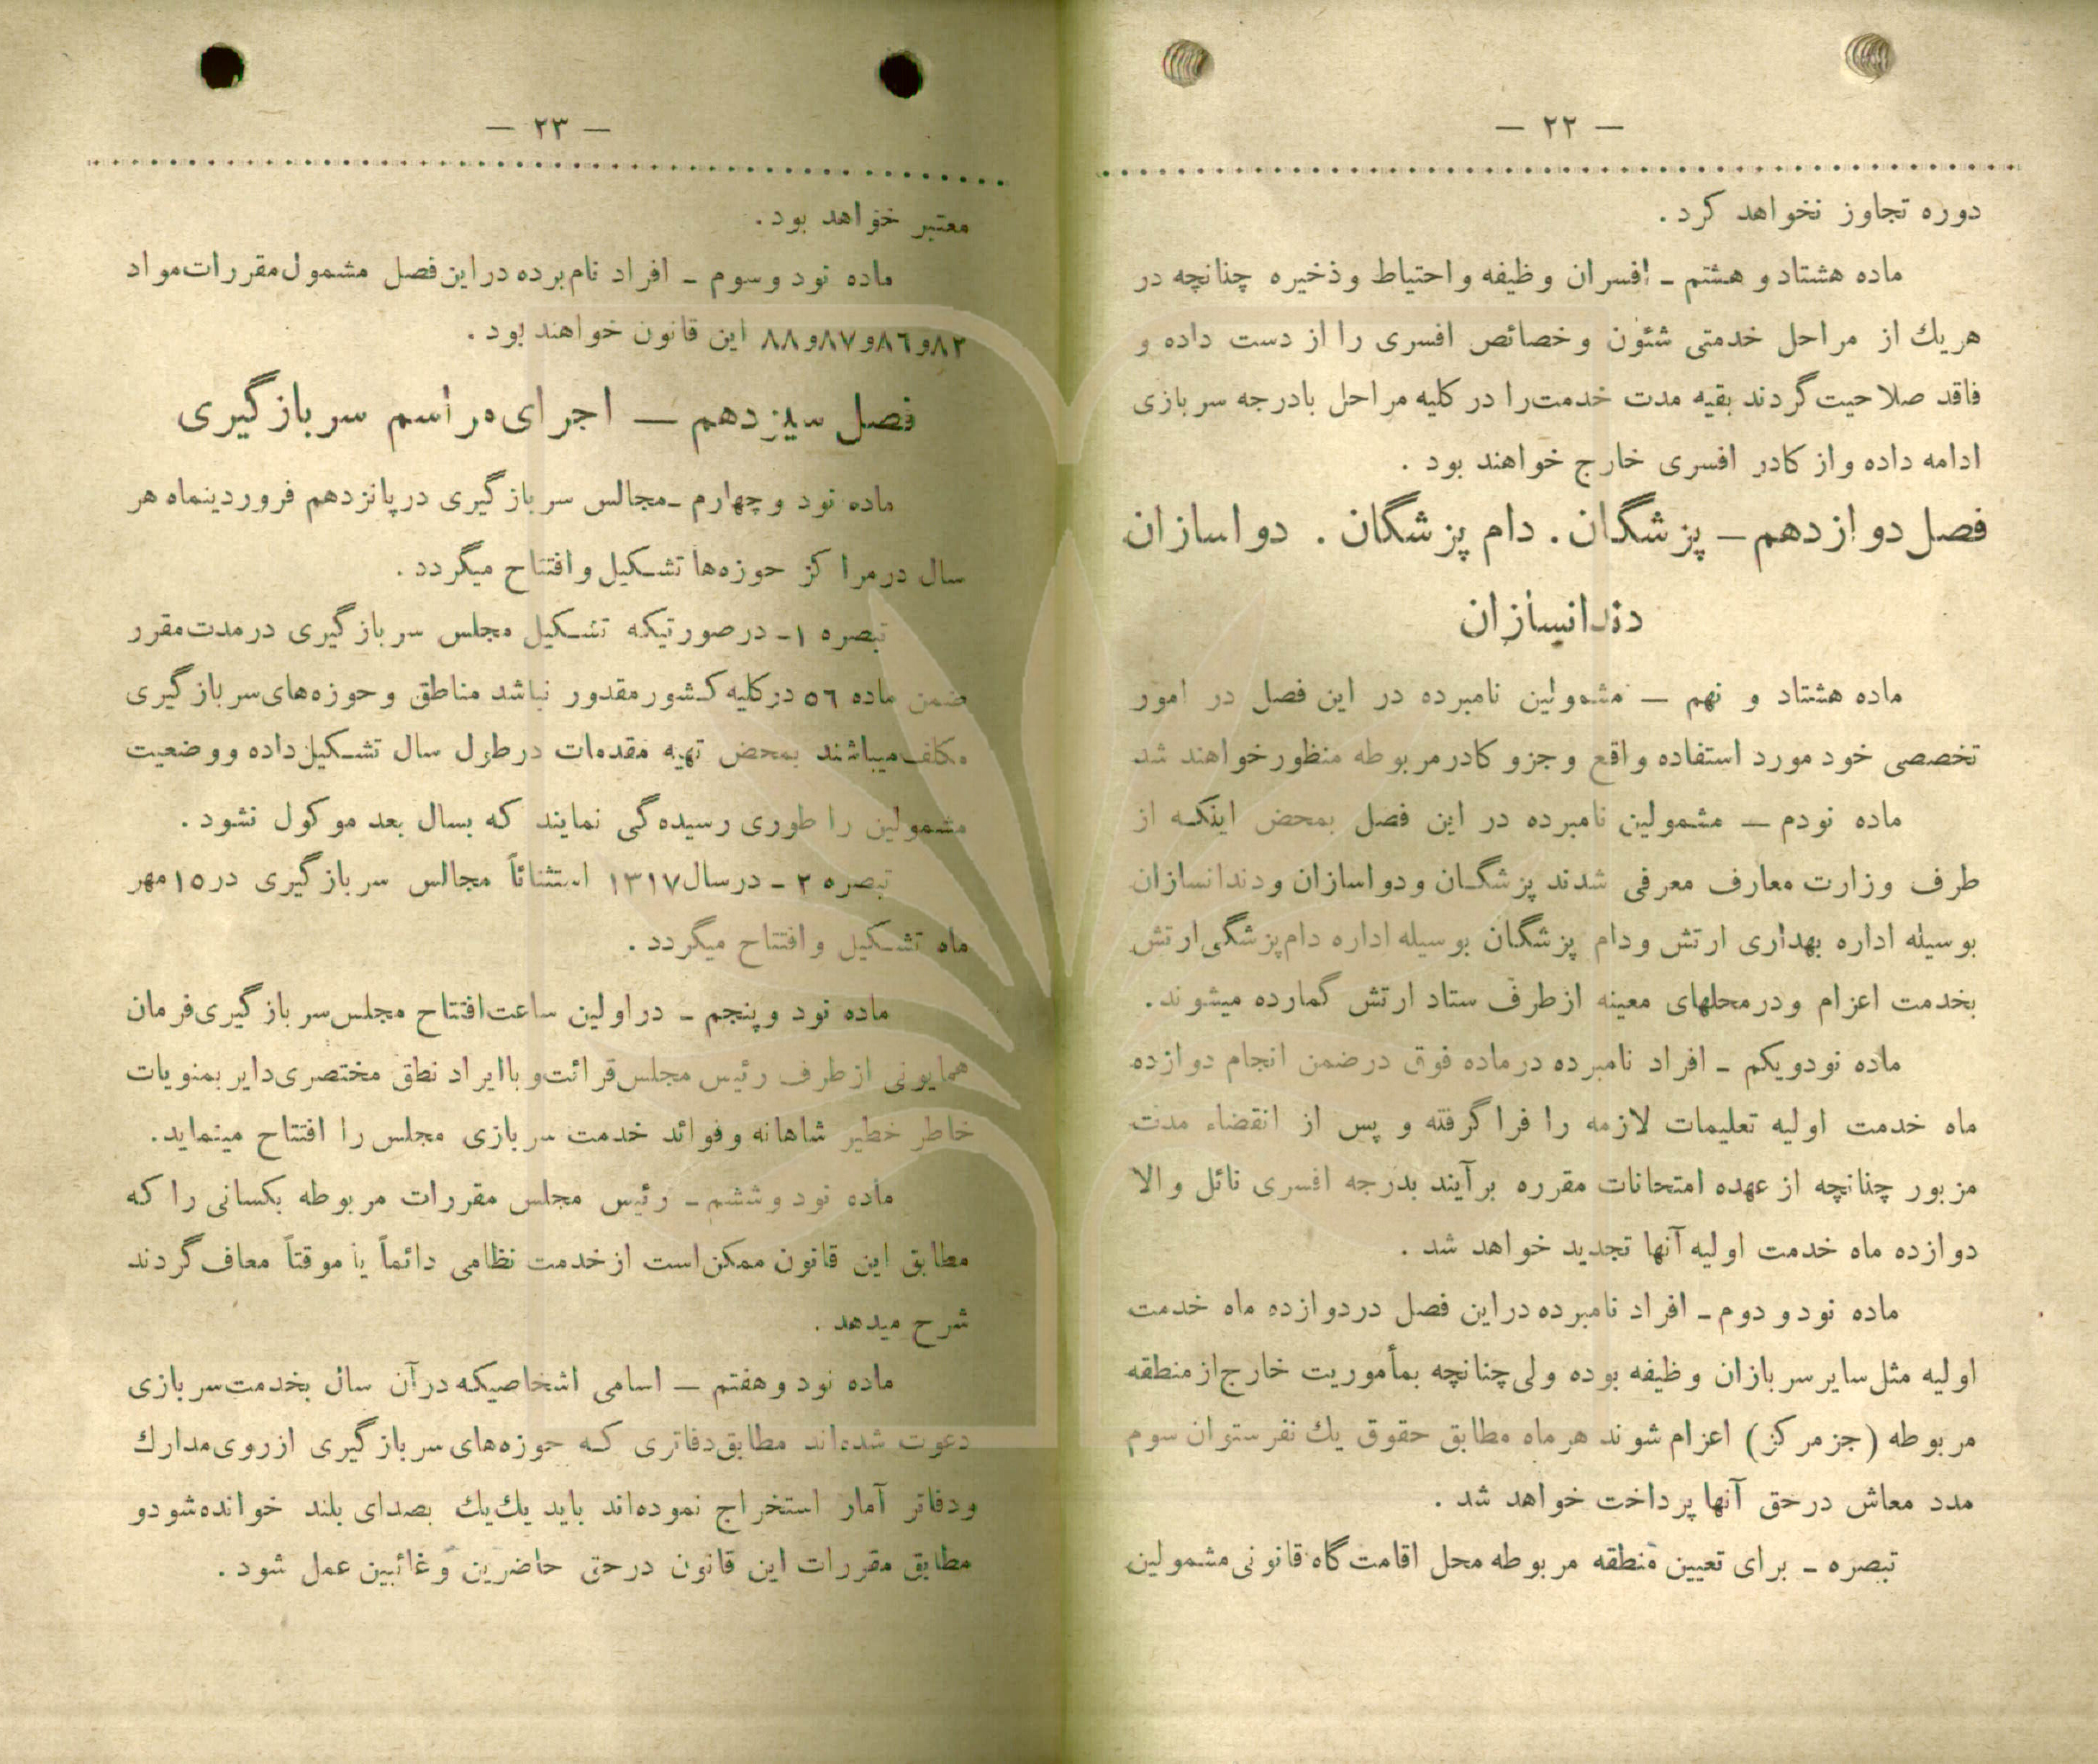 — ۲۲ —
دوره تجاوز نخواهد کرد .
ماده هشتاد و هشتم ـ افسران وظیفه و احتیاط و ذخیره چنانچه در
هریك از مراحل خدمتی شئون و خصائص افسری را از دست داده و
فاقد صلاحیت گردند بقیه مدت خدمت را در کلیه مراحل بادرجه سربازی
ادامه داده و از کادر افسری خارج خواهند بود .
فصل دوازدهم – پزشگان . دام پزشگان . دواسازان
دندانسازان
ماده هشتاد و نهم – مشمولین نامبرده در این فصل در امور
تخصصی خود مورد استفاده واقع و جزو کادر مربوطه منظور خواهند شد
ماده نودم – مشمولین نامبرده در این فصل بمحض اینکه از
طرف وزارت معارف معرفی شدند پزشگان و دواسازان و دندانسازان
بوسیله اداره بهداری ارتش و دام پزشگان بوسیله اداره دام پزشگی ارتش
بخدمت اعزام و در محلهای معینه از طرف ستاد ارتش گمارده میشوند .
ماده نودویکم ـ افراد نامبرده در ماده فوق در ضمن انجام دوازده
ماه خدمت اولیه تعلیمات لازمه را فرا گرفته و پس از انقضاء مدت
مزبور چنانچه از عهده امتحانات مقرره برآیند بدرجه افسری نائل والا
دوازده ماه خدمت اولیه آنها تجدید خواهد شد .
ماده نود و دوم ـ افراد نامبرده در این فصل در دوازده ماه خدمت
اولیه مثل سایر سربازان وظیفه بوده ولی چنانچه بمأموریت خارج از منطقه
مربوطه (جز مرکز) اعزام شوند هر ماه مطابق حقوق یك نفر ستوان سوم
مدد معاش در حق آنها پرداخت خواهد شد .
تبصره ـ برای تعیین منطقه مربوطه محل اقامت گاه قانونی مشمولین
— ۲۳ —
معتبر خواهد بود .
ماده نود و سوم ـ افراد نام برده در این فصل مشمول مقررات مواد
۸۲ و ۸۶ و ۸۷ و ۸۸ این قانون خواهند بود .
فصل سیزدهم – اجرای مراسم سربازگیری
ماده نود و چهارم ـ مجالس سربازگیری در پانزدهم فروردینماه هر
سال در مراکز حوزه‌ها تشکیل و افتتاح میگردد .
تبصره ۱ ـ در صورتیکه تشکیل مجلس سربازگیری در مدت مقرر
ضمن ماده ۵۶ در کلیه کشور مقدور نباشد مناطق و حوزه‌های سربازگیری
مکلف میباشند بمحض تهیه مقدمات در طول سال تشکیل داده و وضعیت
مشمولین را طوری رسیده گی نمایند که بسال بعد موکول نشود .
تبصره ۲ ـ در سال ۱۳۱۷ استثنائاً مجالس سربازگیری در ۱۵ مهر
ماه تشکیل و افتتاح میگردد .
ماده نود و پنجم ـ در اولین ساعت افتتاح مجلس سربازگیری فرمان
همایونی از طرف رئیس مجلس قرائت و با ایراد نطق مختصری دایر بمنویات
خاطر خطیر شاهانه و فوائد خدمت سربازی مجلس را افتتاح مینماید .
ماده نود و ششم ـ رئیس مجلس مقررات مربوطه بکسانی را که
مطابق این قانون ممکن است از خدمت نظامی دائماً یا موقتاً معاف گردند
شرح میدهد .
ماده نود و هفتم – اسامی اشخاصیکه در آن سال بخدمت سربازی
دعوت شده‌اند مطابق دفاتری که حوزه‌های سربازگیری از روی مدارك
و دفاتر آمار استخراج نموده‌اند باید یك یك بصدای بلند خوانده شود و
مطابق مقررات این قانون در حق حاضرین و غائبین عمل شود .